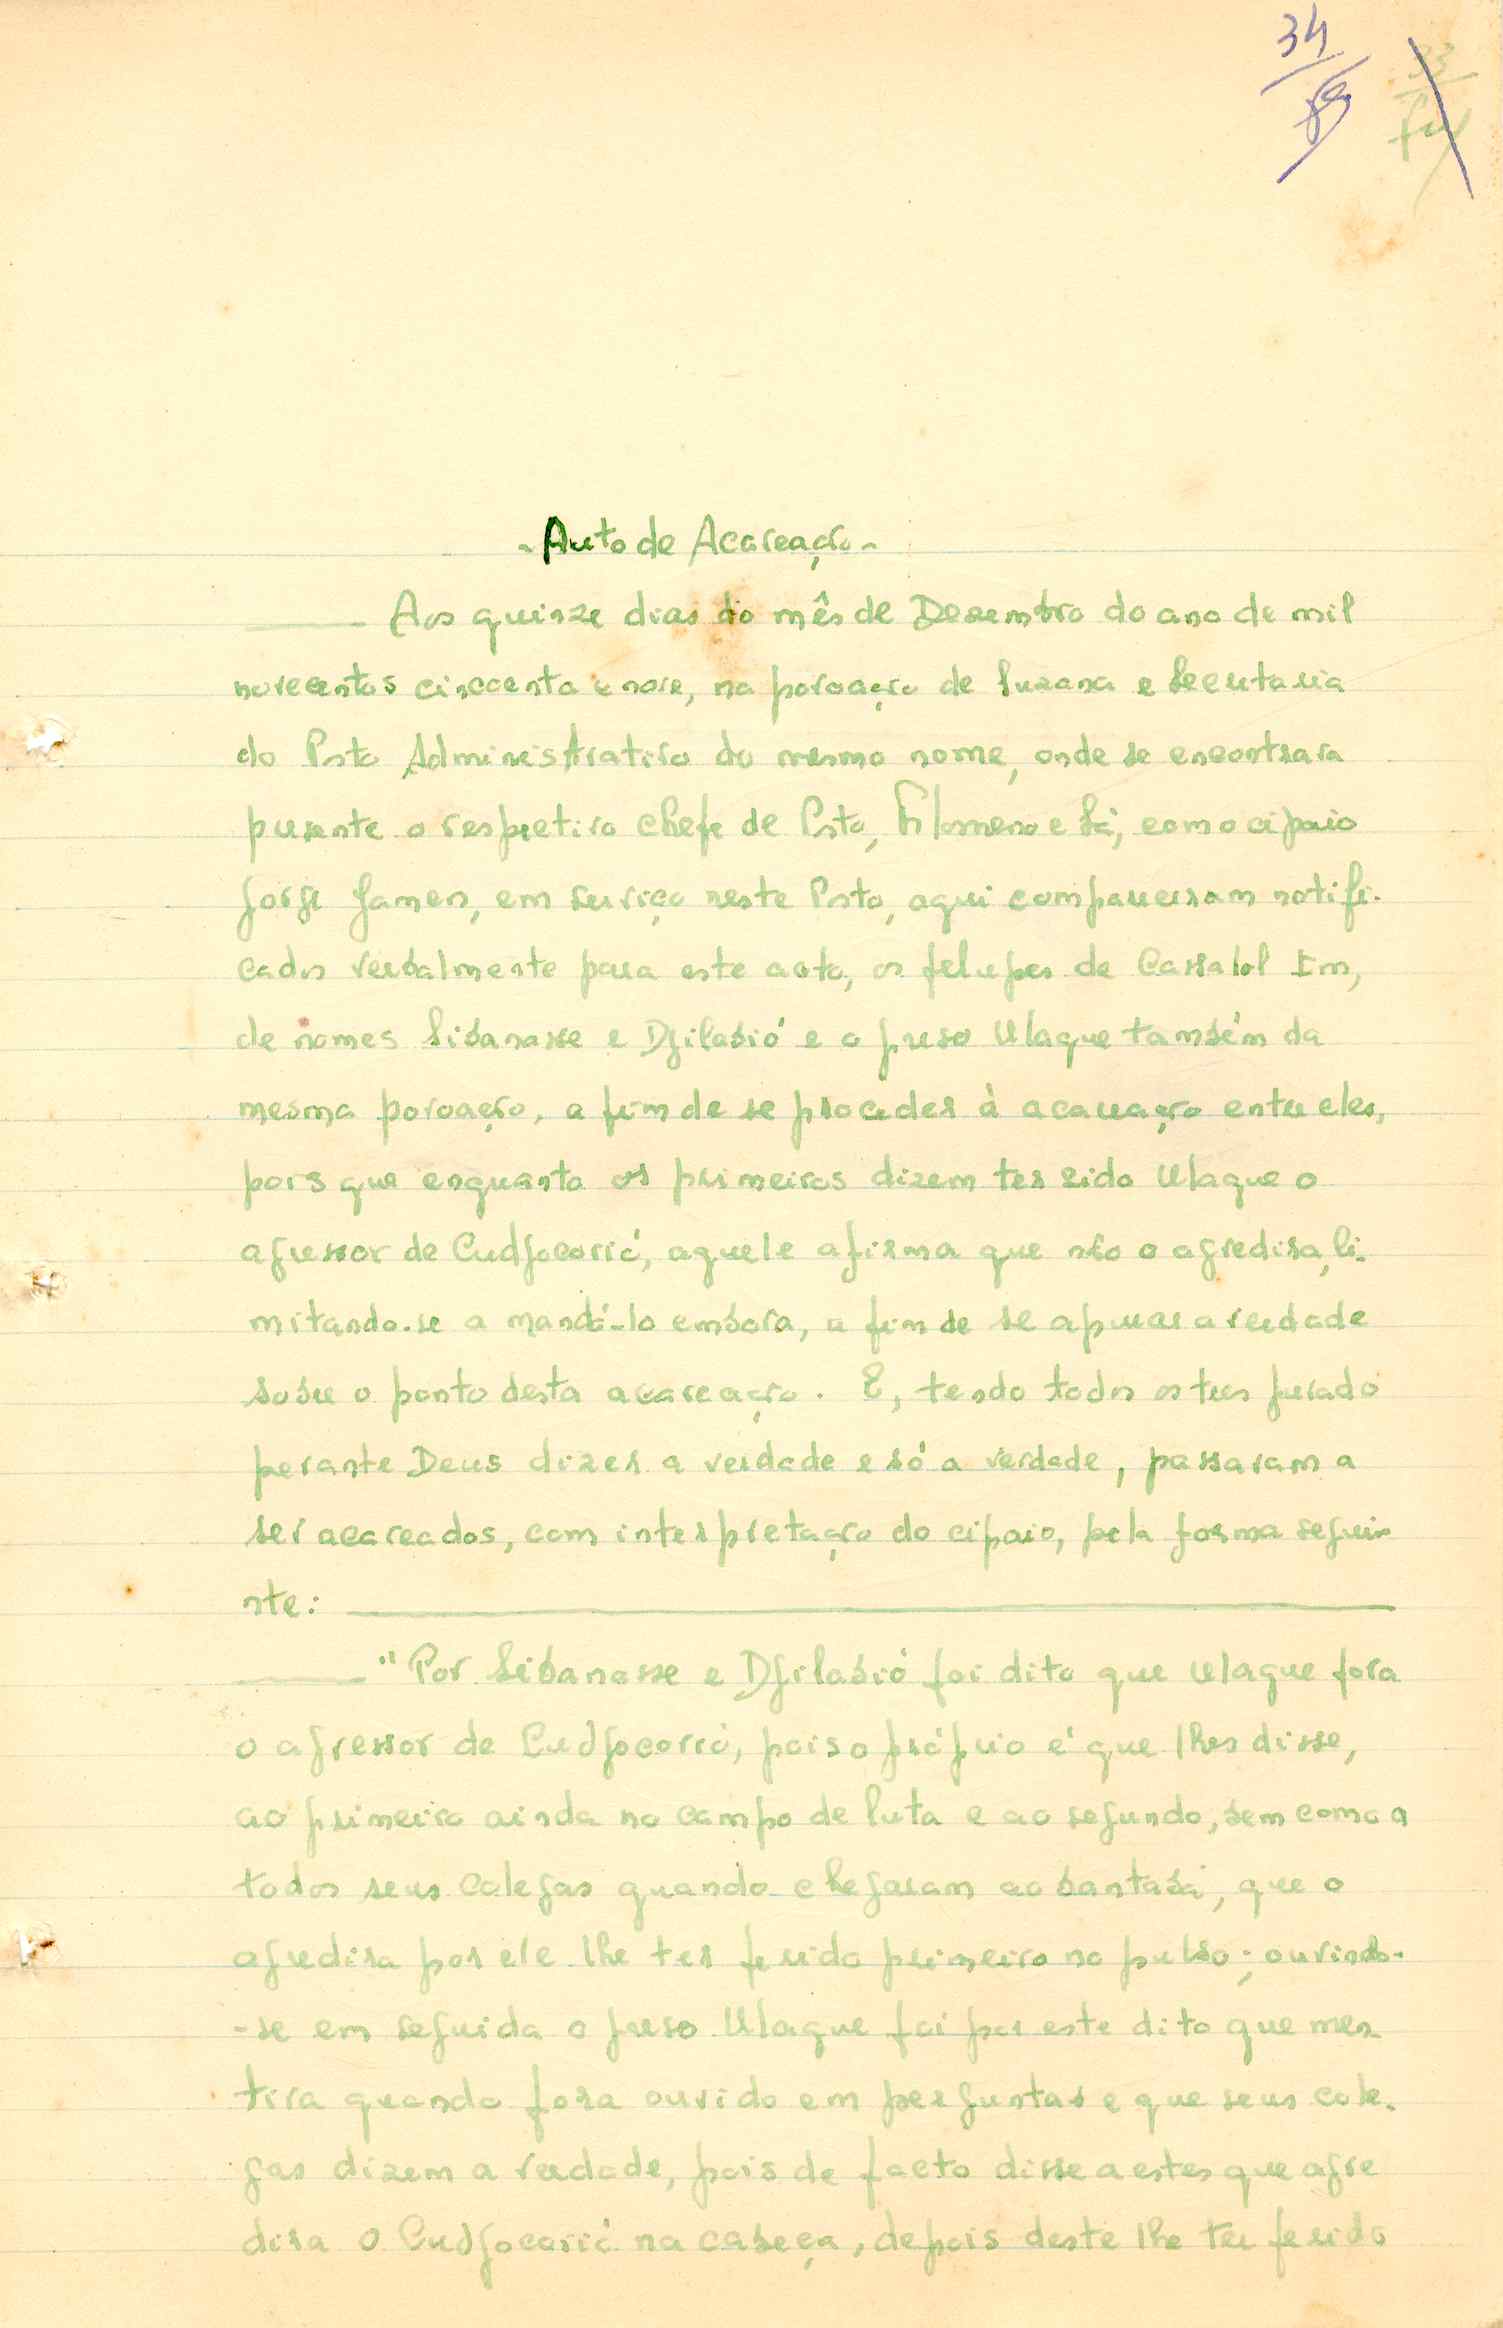 34
33
- Auto de Acareação -
Aos quinze dias do mês de Dezembro do ano de mil
novecentos cincoenta e nove, na povoação de Suzana e Secretaria
do Posto Administrativo do mesmo nome, onde se encontrava
presente o respectivo Chefe de Posto, Filomeno e Sá, com o cipaio
Jorge Gomes, em serviço neste Posto, aqui compareceram notifi-
cados verbalmente para este acto, os felupes de Cassalol Em,
de nomes Sibanasse e Djilabió e o preso Ulaque também da
mesma povoação, a fim de se proceder à acareação entre eles,
pois que enquanto os primeiros dizem ter sido Ulaque o
agressor de Cudjocorió, aquele afirma que não o agredira, li-
mitando-se a mandá-lo embora, a fim de se apurar a verdade
sobre o ponto desta acareação. E, tendo todos os tres jurado
perante Deus dizer a verdade e só a verdade, passaram a
ser acareados, com interpretação do cipaio, pela forma segui-
nte:
"Por Sibanasse e Djilabió foi dito que Ulaque fora
o agressor de Cudjocorió, pois o próprio é que lhes disse,
ao primeiro ainda no campo de luta e ao segundo, bem como a
todos seus colegas quando chegaram ao bantabá, que o
agredira por ele lhe ter ferido primeiro no pulso; ouvindo-
-se em seguida o preso Ulaque foi por este dito que men-
tira quando fora ouvido em perguntas e que seus cole-
gas dizem a verdade, pois de facto disse a estes que agre
dira o Cudjocorió na cabeça, depois deste lhe ter ferido